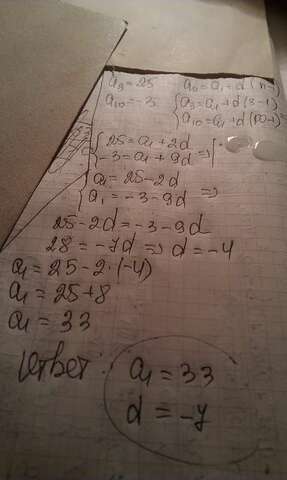 a₃ = 25 aₙ = a₁ + d(n-1)
a₁₀ = -3 a₃ = a₁ + d(3-1)
a₁₀ = a₁ + d(10-1)
25 = a₁ + 2d
-3 = a₁ + 9d ⇒
a₁ = 25 - 2d
a₁ = -3 - 9d ⇒
25 - 2d = -3 - 9d
28 = -7d ⇒ d = -4
a₁ = 25 - 2·(-4)
a₁ = 25 + 8
a₁ = 33
Ответ:
a₁ = 33
d = -4